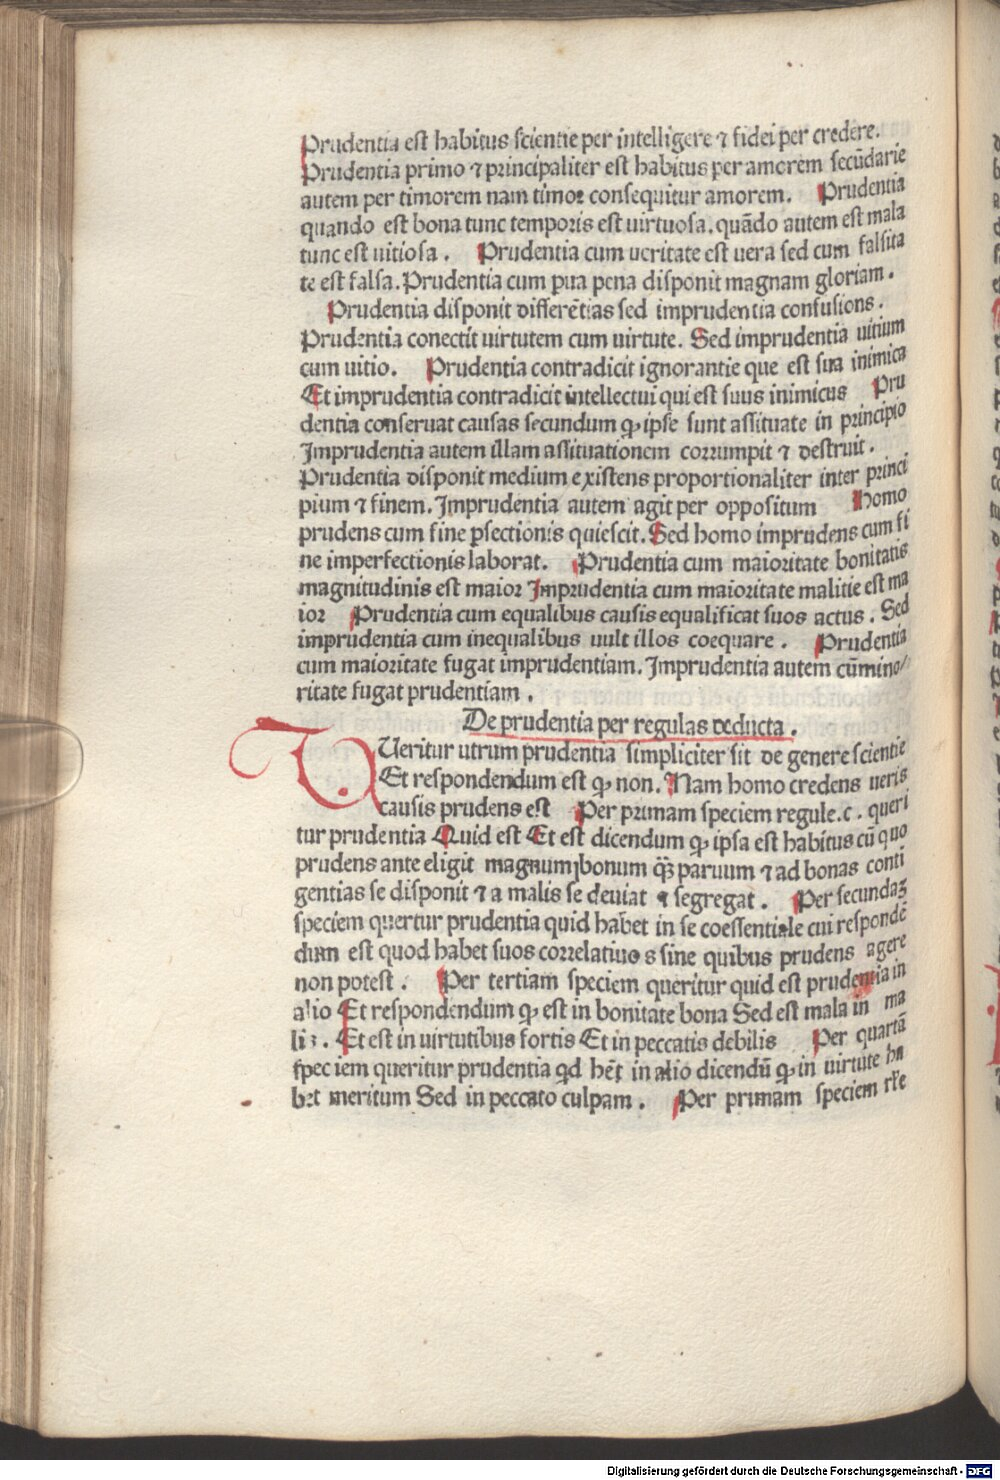 Prudentia est habitus scientie per intelligere ⁊ fidei per credere.
Prudentia primo ⁊ principaliter est habitus per amorem secūdarie
autem per timorem nam timor consequitur amorem. Prudentia
quando est bona tunc temporis est uirtuosa. quādo autem est mala
tunc est uitiosa. Prudentia cum ueritate est uera sed cum falsita
te est falsa. Prudentia cum pua pena disponit magnam gloriam.
Prudentia disponit differētias sed imprudentia confusions.
Prudentia conectit uirtutem cum uirtute. Sed imprudentia uitium
cum uitio. Prudentia contradicit ignorantie que est sua inimica
Et imprudentia contradicit intellectui qui est suus inimicus Pru
dentia conseruat causas secundum ꝙ ipse sunt assituate in principio
Imprudentia autem illam assituationem corrumpit ⁊ destruit.
Prudentia disponit medium existens proportionaliter inter princi
pium ⁊ finem. Imprudentia autem agit per oppositum Homo
prudens cum fine ꝑfectionis quiescit. Sed homo imprudens cum fi
ne imperfectionis laborat. Prudentia cum maioritate bonitatis
magnitudinis est maior Imprudentia cum maioritate malitie est ma
ior Prudentia cum equalibus causis equalificat suos actus. Sed
imprudentia cum inequalibus uult illos coequare. Prudentia
cum maioritate fugat imprudentiam. Imprudentia autem cūmino/
ritate fugat prudentiam.
De prudentia per regulas deducta.
Ueritur utrum prudentia simpliciter sit de genere scientie
Et respondendum est ꝙ non. Nam homo credens ueris
causis prudens est Per primam speciem regule .c. queri
tur prudentia Quid est Et est dicendum ꝙ ipsa est habitus cū quo
prudens ante eligit magnum bonum qȝ̄ paruum ⁊ ad bonas conti
gentias se disponit ⁊ a malis se deuiat ⁊ segregat. Per secundaꝫ
speciem quertur prudentia quid habet in se coessentiale cui respondē
dum est quod habet suos correlatiuo s sine quibus prudens agere
non potest. Per tertiam speciem queritur quid est prudentia in
alio Et respondendum ꝙ est in bonitate bona Sed est mala in ma
liꝫ. Et est in uirtutibus fortis Et in peccatis debilis Per quartā
spec iem queritur prudentia qd hēt in alio dicendū ꝙ in uirtute ha
bet meritum Sed in peccato culpam. Per primam speciem rl̄e
Digitalisierung gefördert durch die Deutsche Forschungsgemeinschaft - DFG